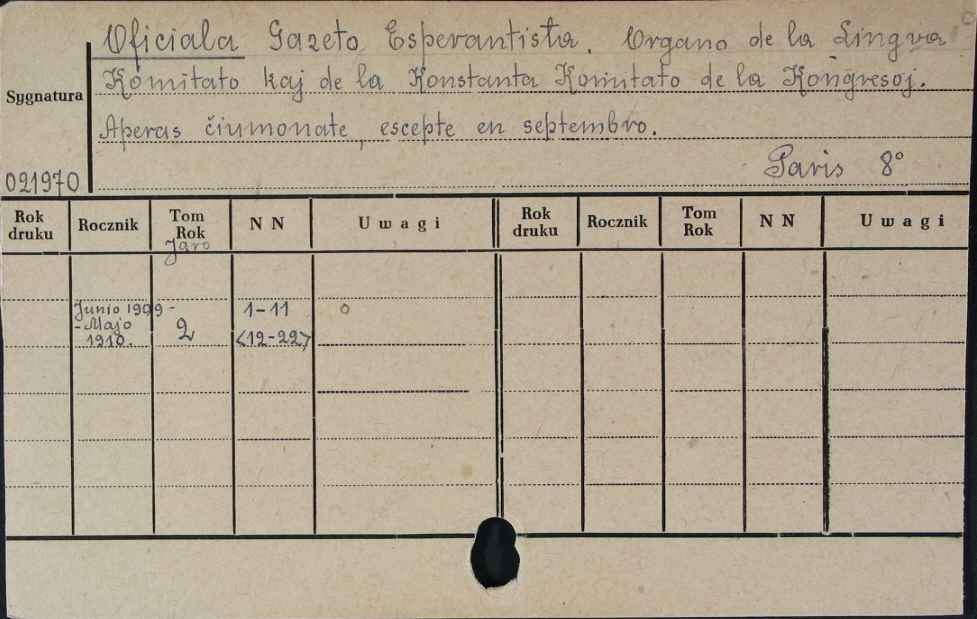 Oficiala Gazeto Esperantista. Organo de la Lingva
Komitato kaj de la Konstanta Komitato de la Kongresoj.
Sygnatura
Aperas ĉiumonate, escepte en septembro.
Paris 8°
021970
Rok druku Rocznik Tom Rok Jaro NN Uwagi Rok druku Rocznik Tom Rok NN Uwagi
Junio 1909 - 1-11 o
- Majo 2
1910. <12-22>